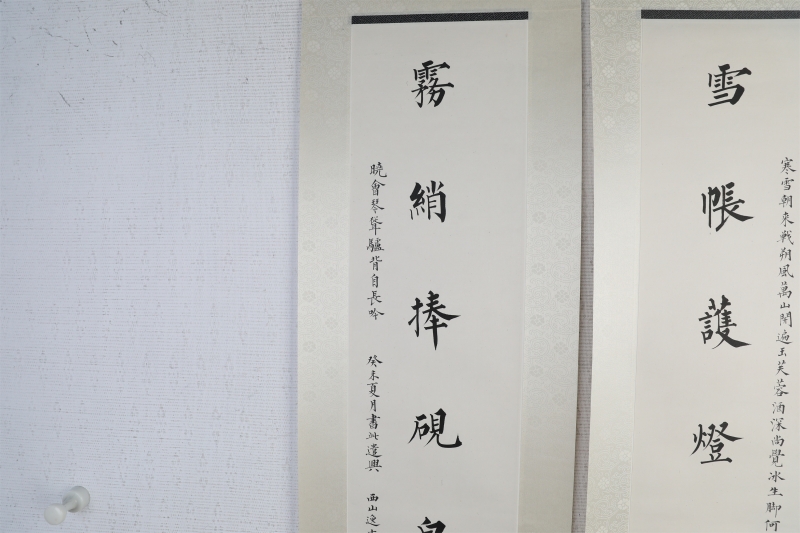 寒雪朝來戰朔風萬山開遍玉芙蓉酒深尚覺冰生腳何
雪帳護燈
霧綃捧硯
曉會琴年驢背自長吟 癸未夏月書此遣興 西山逸